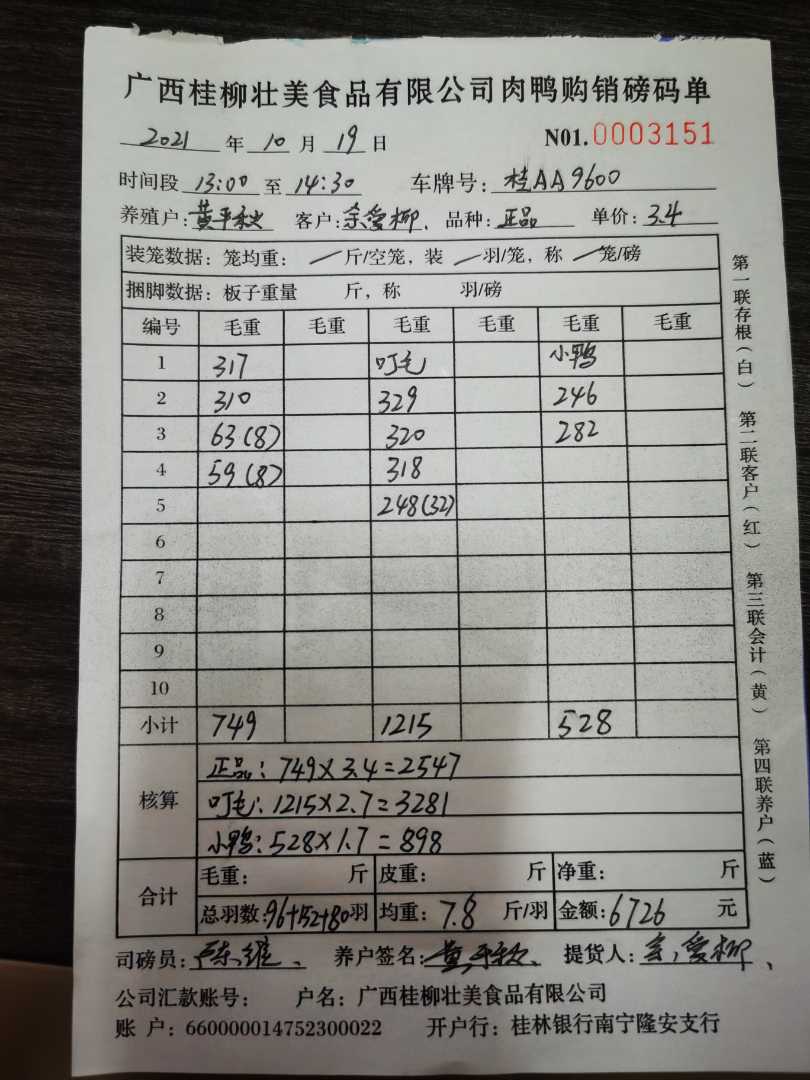 广西桂柳壮美食品有限公司肉鸭购销磅码单
2021 年 10 月 19 日 N01.0003151
时间段 13:00 至 14:30 车牌号: 桂AA9600
养殖户: 黄平秋 客户: 余爱柳、 品种: 正品 单价: 3.4
装笼数据: 笼均重: 斤/空笼, 装 羽/笼, 称 笼/磅
捆脚数据: 板子重量 斤, 称 羽/磅
编号 毛重 毛重 毛重 毛重 毛重 毛重
1 317 叮毛 小鸭
2 310 329 246
3 63(8) 320 282
4 59(8) 318
5 248(32)
6
7
8
9
10
小计 749 1215 528
核算 正品: 749×3.4=2547
叮毛: 1215×2.7=3281
小鸭: 528×1.7=898
合计 毛重: 斤 皮重: 斤 净重: 斤
总羽数: 96+152+80羽 均重: 7.8 斤/羽 金额: 6726 元
司磅员: 陈维、 养户签名: 黄平秋、 提货人: 余爱柳、
公司汇款账号: 户名: 广西桂柳壮美食品有限公司
账 户: 660000014752300022 开户行: 桂林银行南宁隆安支行
第一联存根(白) 第二联客户(红) 第三联会计(黄) 第四联养户(蓝)